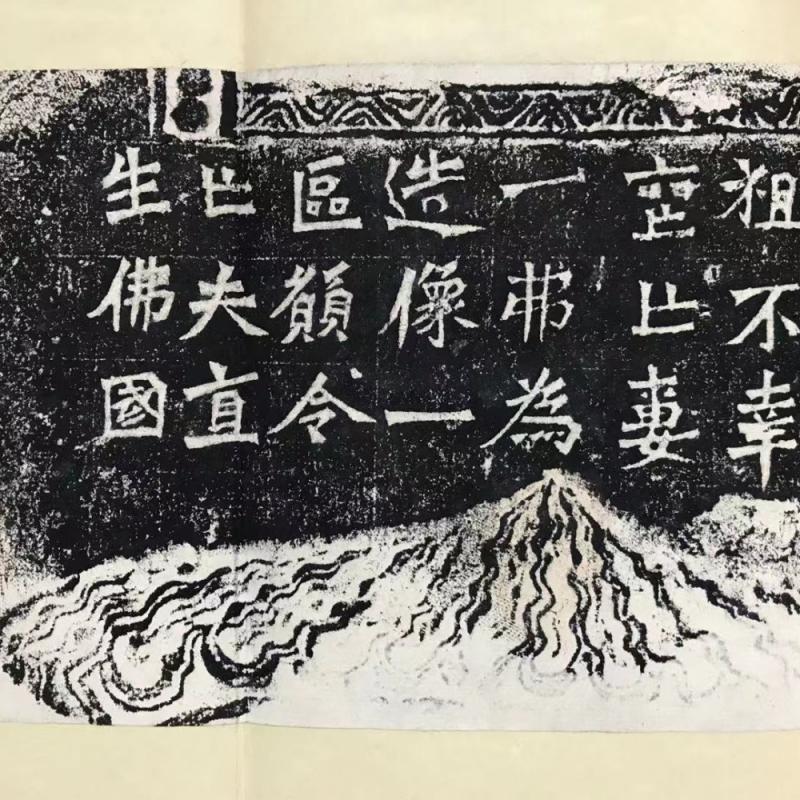 祖不幸
喪亡妻
一弗為
造像一
區願令
亡夫直
生佛國